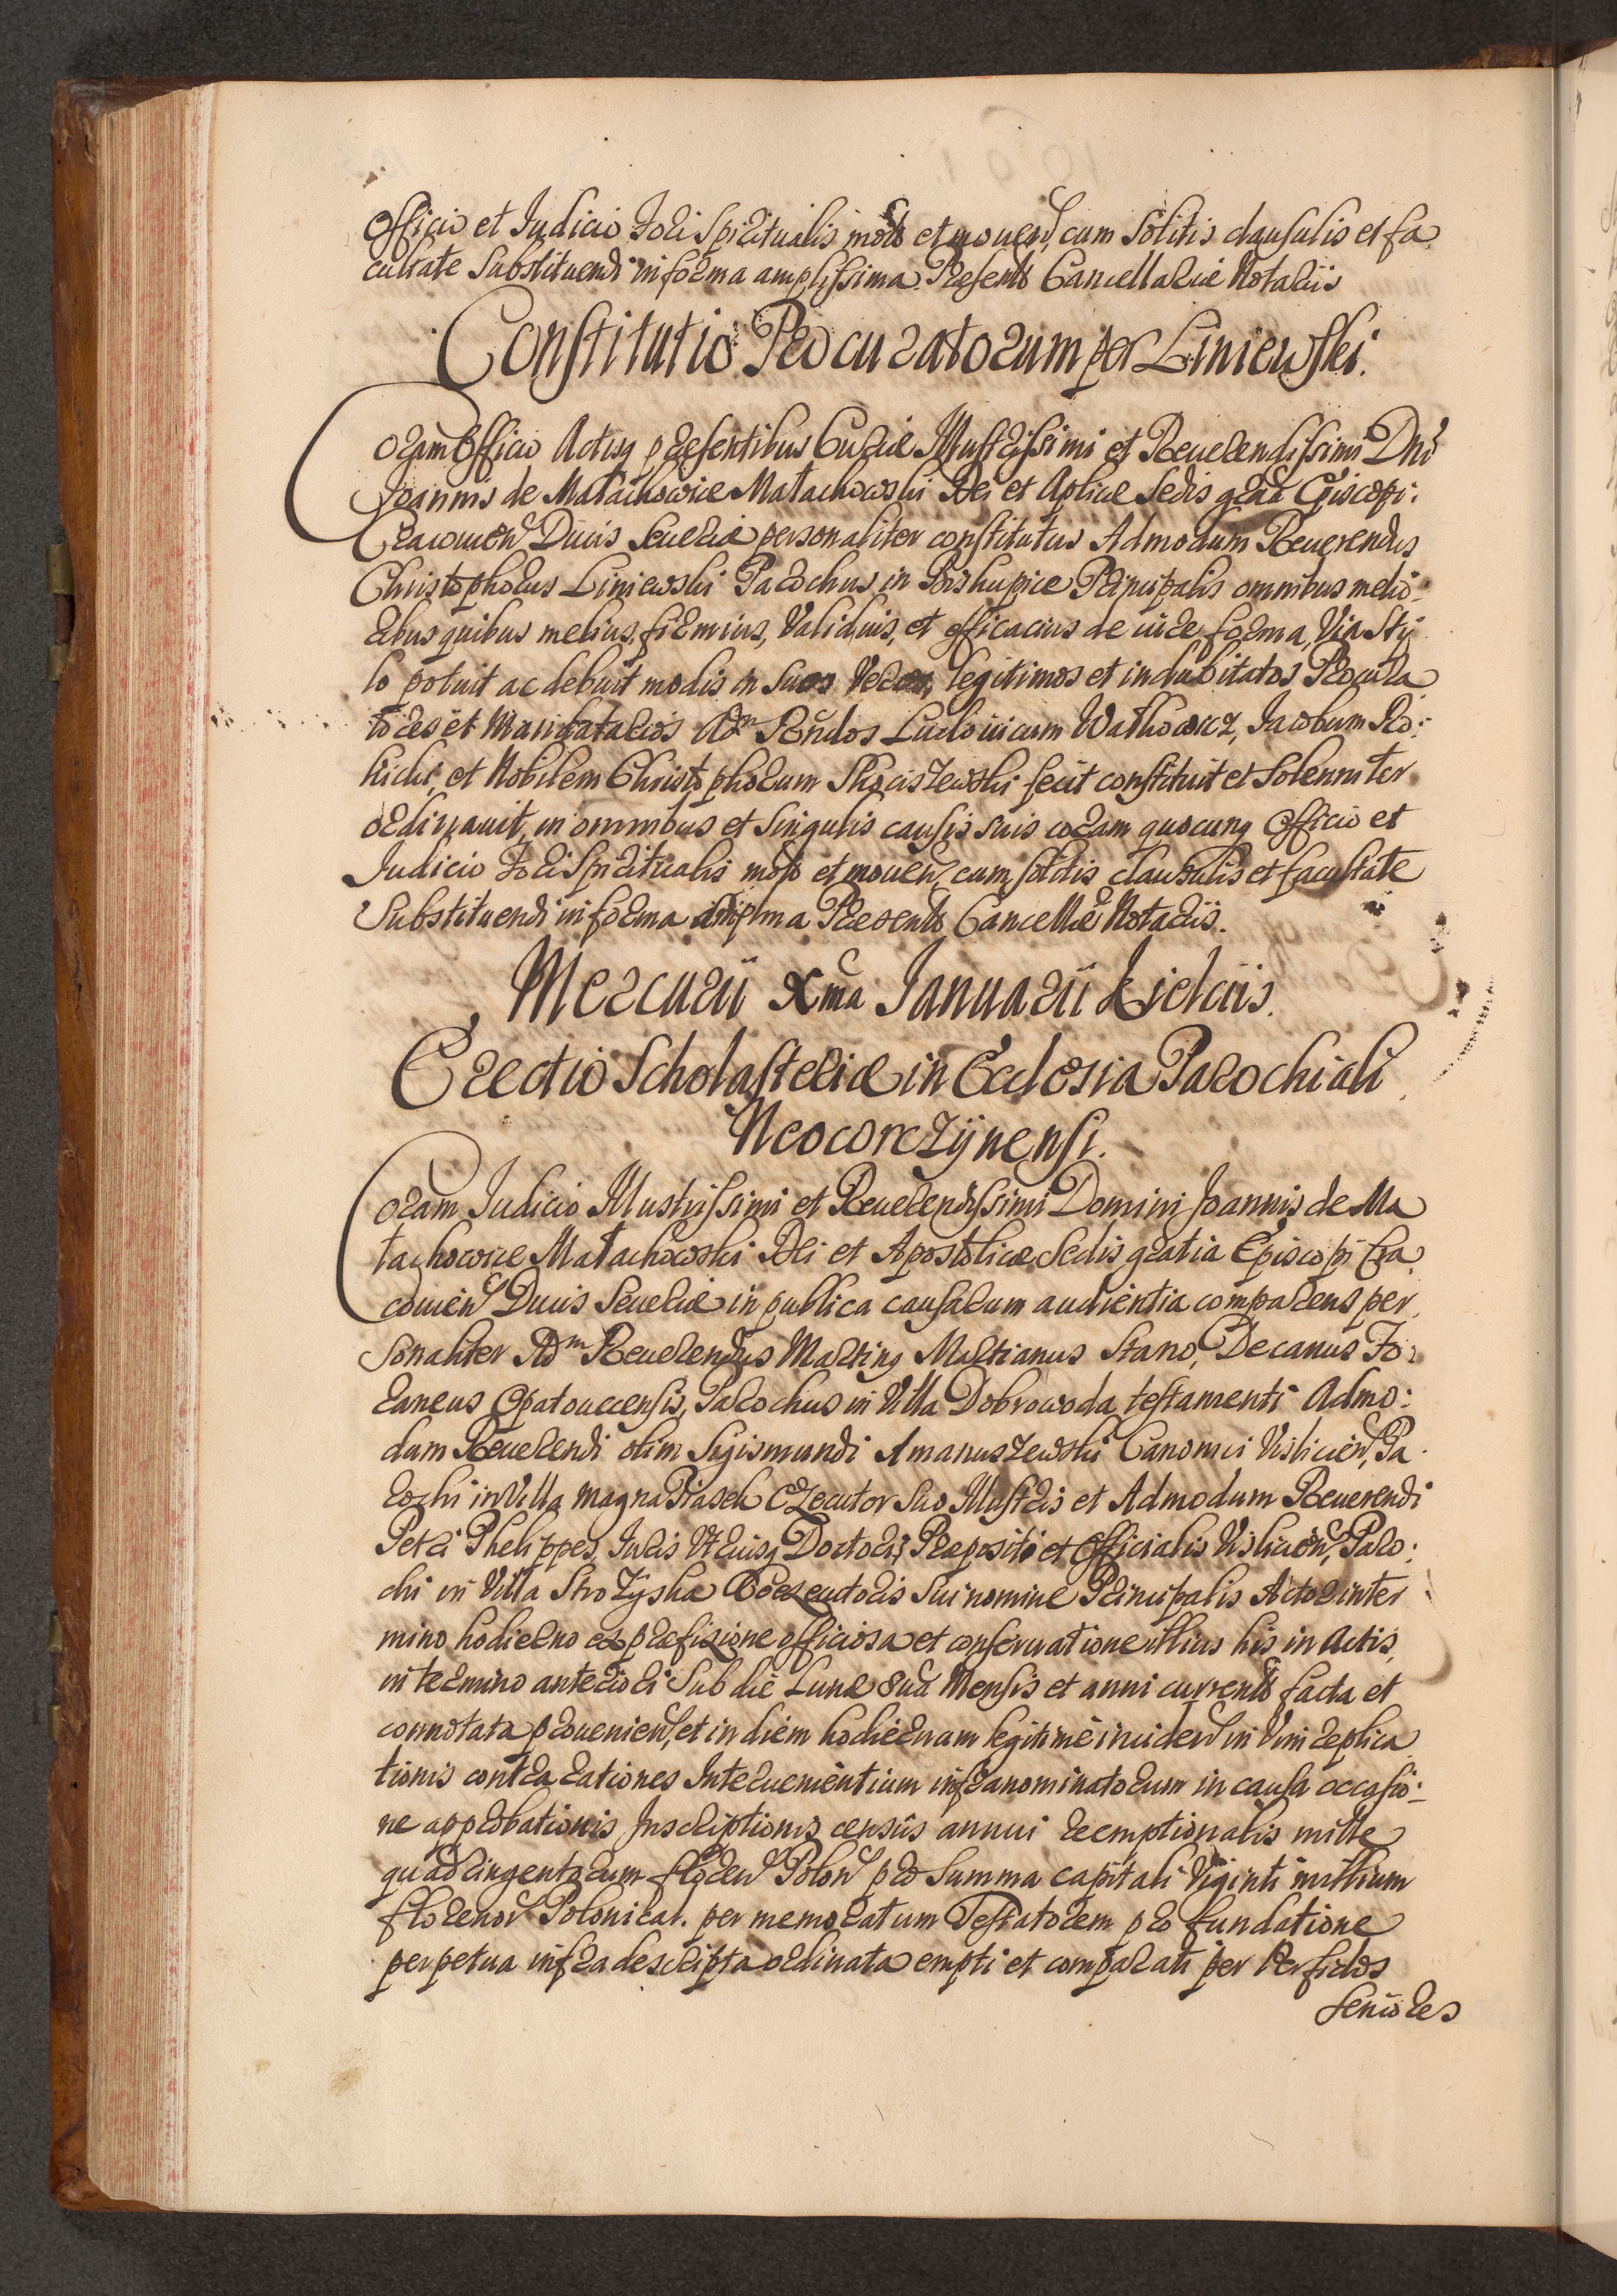 Officio et Judicio Fori Spiritualis motis et mouen, cum solitis clausulis et fa
cultate Substituendi in forma amplissima. Præsentb Cancellariæ Notariis
Constitutio Procuratorum per Liniewski.
Coram Officio Actisq præsentibus Curiæ Illustrissimi et Reuerendissimi Dni
Joannis de Małachowice Małachowski Dei et Aplicæ Sedis gratia Episcopi
Cracouien Ducis Seueriæ personaliter constitutus Admodum Reuerendus
Christophorus Liniewski Parochus in Principalis omnibus melio:
ribus quibus melius, firmius, Validius, et efficacius de iure, forma, Via Sty
lo potuit ac debuit modis in suos Veros, legitimos et indubitatos Procura
tores et Mandatarios Adm Rndos Ludouicum Jacobum Ro:
kicki, et Nobilem Christophorum fecit constituit et Solenniter
ordinauit, in omnibus et singulis causis suis coram quocunq Officio et
Judicio Fori Spiritualis motis et mouen, cum solitis clausulis et facultate
Substituendi in forma Præsentb Cancellariæ Notariis.
Mercurii Xma Januarii Kielciis.
Erectio Scholasteriæ in Ecclesia Parochiali
Neocorczÿnensi.
Coram Judicio Illustrissimi et Reuerendissimi Domini Joannis de Ma
łachowice Małachowski Dei et Apostolicæ Sedis gratia Episcopi Cra
couien Ducis Seueriæ in publica causarum audientia comparens per
sonaliter Adm Reuerendus Martinq Martianus Stano, Decanus Fo:
raneus Opatouecensis, Parochus in Villa Dobrowoda testamenti Admo:
dum Reuerendi olim Sigismundi Amanuszewski Canonici Vislicien, Pa
rochi in Villa magna Piasek Exzecutor Suo Illustris et Admodum Reuerendi
Petri Phelippes, Juris Vtriusq Doctoris, Præpositi et Officialis Vislicien, Paro:
chi in Villa Strozÿska Coexecutoris sui nomine Principalis Actor in ter
mino hodierno ex præfixione officiosa et conseruatione illius his in Actis,
in termino anteriori Sub die Lunæ 8ua Mensis et anni currentb facta et
connotata prouenien, et in diem hodiernam legitimè inciden in Vim replica
tionis contra rationes Interuenientium infranominatorum in causa occasio:
ne approbationis Inscriptionis censûs annui reemptionalis mille
quadringentorum floren Polon pro Summa capitali Viginti millium
florenor Polonical. per memoratum Testatorem pro fundatione
perpetua infra descripta ordinata empti et comparati per Perfidos
Seniores